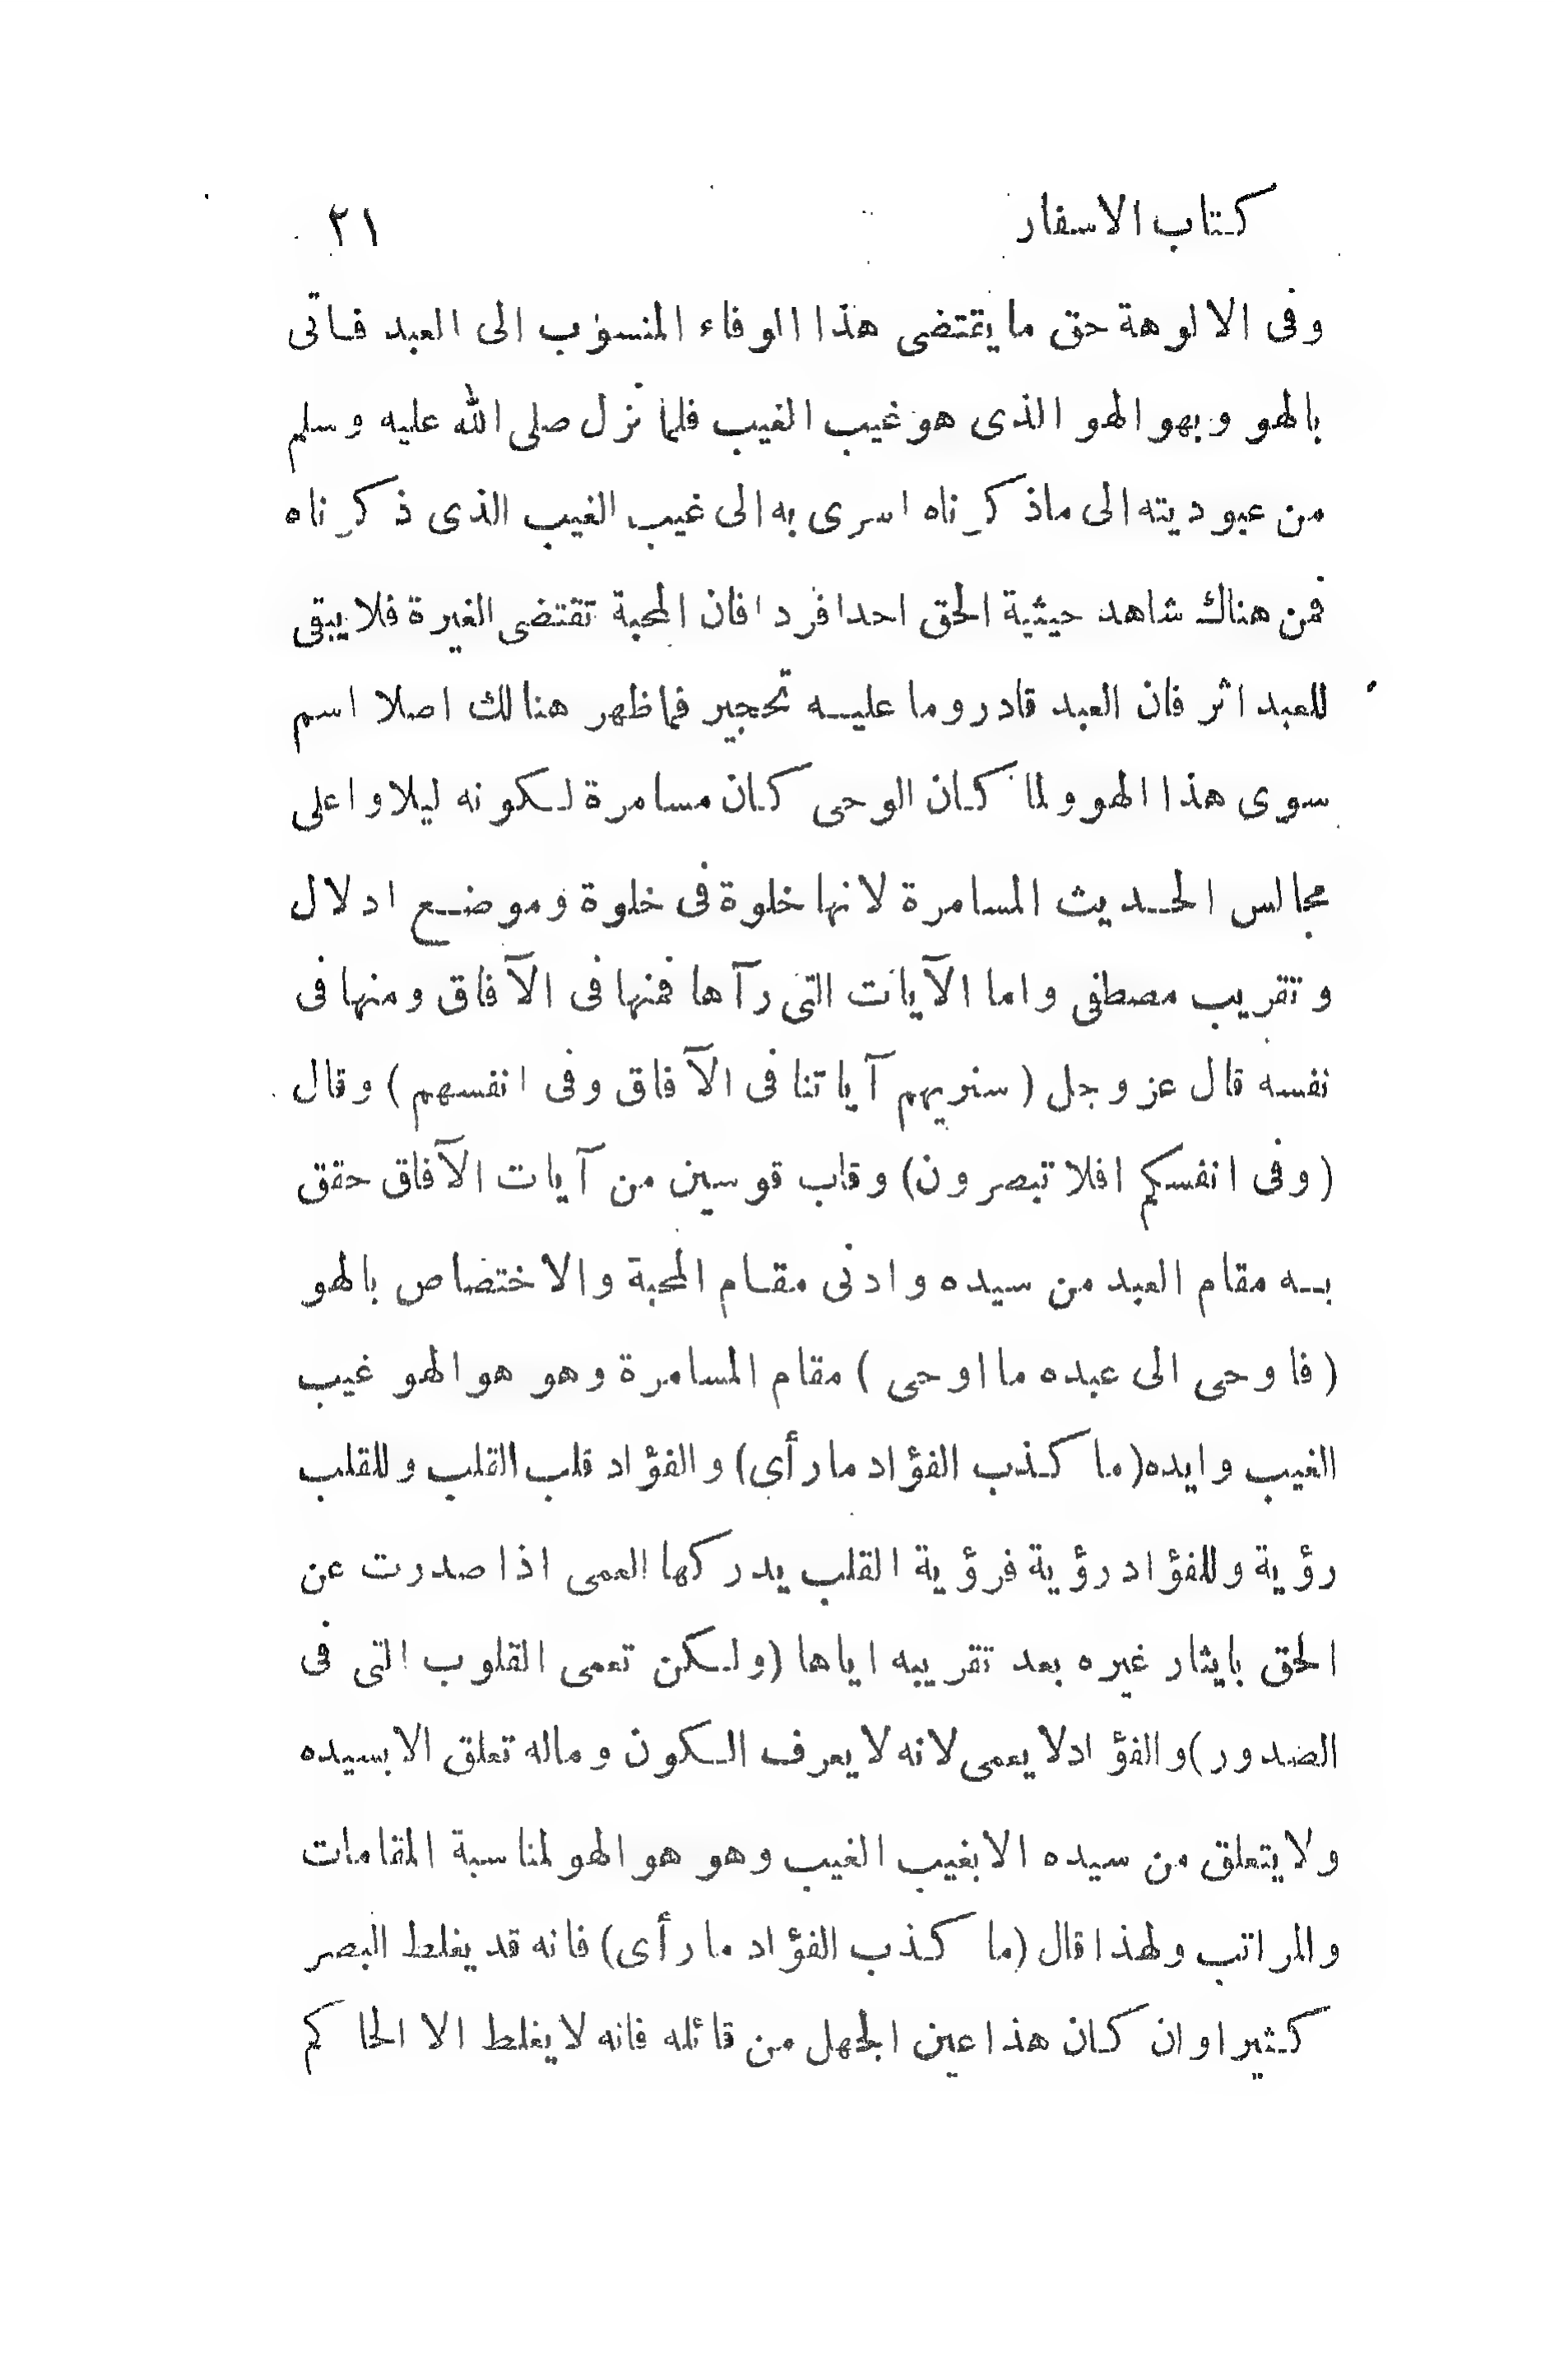 كتاب الاسفار ٢١
وفى الالوهة حق ما يقتضى هذا الوفاء المنسوب الى العبد فاتى
بالهو وبهو الهو الذى هو غيب الغيب فلما نزل صلى الله عليه وسلم
من عبوديته الى ماذكرناه اسرى به الى غيب الغيب الذى ذكرناه
فمن هناك شاهد حيثية الحق احدا فردا فان المحبة تقتضى الغيرة فلا يبقى
للعبد اثر فان العبد قادر وما عليه تحجير فما ظهر هنالك اصلا اسم
سوى هذا الهو ولما كان الوحى كان مسامرة لكونه ليلا واعلى
مجالس الحديث المسامرة لانها خلوة فى خلوة وموضع ادلال
وتقريب مصطفى واما الآيات التى رآها فمنها فى الآفاق ومنها فى
نفسه قال عز وجل (سنريهم آياتنا فى الآفاق وفى انفسهم) وقال
(وفى انفسكم افلا تبصرون) وقاب قوسين من آيات الآفاق حقق
به مقام العبد من سيده وادنى مقام المحبة والاختصاص بالهو
(فاوحى الى عبده ما اوحى) مقام المسامرة وهو هو الهو غيب
الغيب وايده (ما كذب الفؤاد ما رأى) والفؤاد قلب القلب وللقلب
رؤية وللفؤاد رؤية فرؤية القلب يدركها العمى اذا صدرت عن
الحق بايثار غيره بعد تقريبه اياها (ولكن تعمى القلوب التى فى
الصدور) والفؤاد لا يعمى لانه لا يعرف الكون وماله تعلق الا بسيده
ولا يتعلق من سيده الا بغيب الغيب وهو هو الهو لمناسبة المقامات
والمراتب ولهذا قال (ما كذب الفؤاد ما رأى) فانه قد يغلط البصر
كثيرا وان كان هذا عين الجهل من قائله فانه لا يغلط الا الحاكم